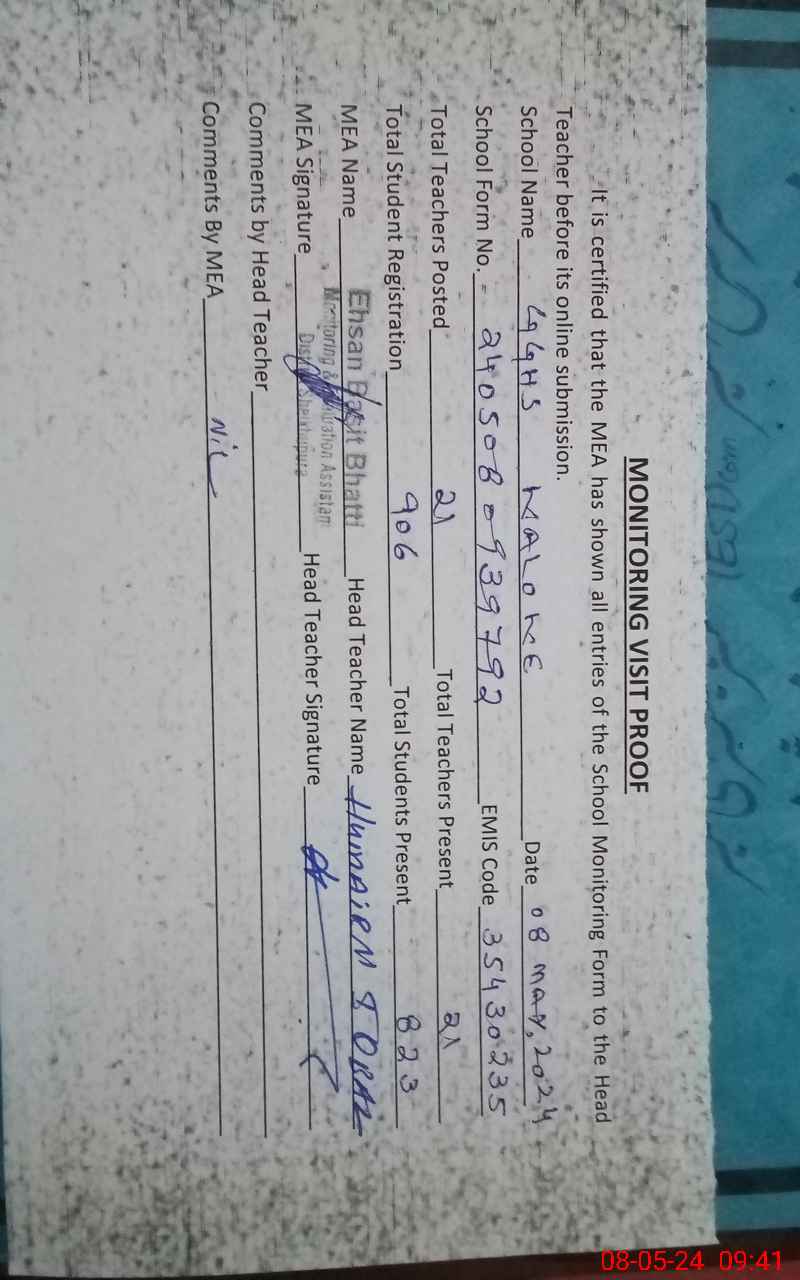 MONITORING VISIT PROOF
It is certified that the MEA has shown all entries of the School Monitoring Form to the Head
Teacher before its online submission.
School Name GGHS MALOWE Date 08 May, 2024
School Form No. - 2405080939792 EMIS Code 35430235
Total Teachers Posted 21 Total Teachers Present 21
Total Student Registration 906 Total Students Present 823
MEA Name Ehsan Basit Bhatti Head Teacher Name
Monitoring & Assistant
MEA Signature Head Teacher Signature
Comments by Head Teacher
Comments By MEA Nil
08-05-24 09:41